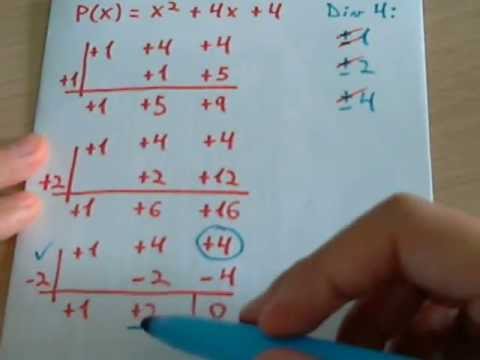 P(x) = x² + 4x + 4
Div 4:
±1
±2
±4
+1 +4 +4
+1 +1 +5
+1 +5 +9
+1 +4 +4
+2 +2 +12
+1 +6 +16
✓ +1 +4 +4
-2 -2 -4
+1 +2 0